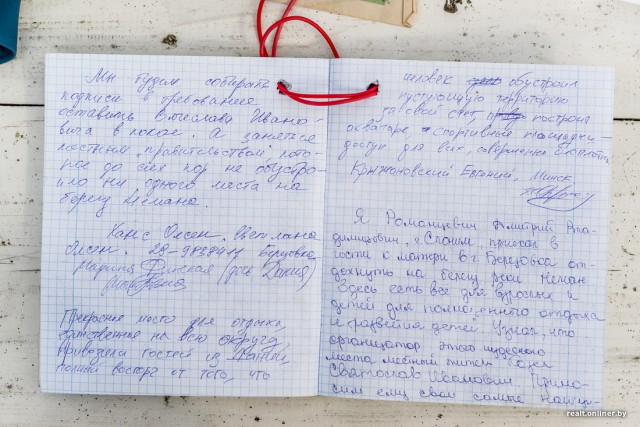 Мы будем собирать
подписи в требование
оставить Вячеслава Ивано-
вича в покое. А заняться
местным "правительством" кото-
рое до сих пор не обустро-
ило ни одного места на
берегу Немана.
Ханс Олсен. Светлана
Олсен. Березовка
Марина Финская (Дания)
Прекрасное место для отдыха,
единственное на всю округу,
привозили гостей из Дании,
полный восторг от того, что
человек обустроил
пустующую территорию
за свой счет построил
спортивные площадки —
доступ для всех, совершенно бесплатно
Крыжановский Евгений, Минск
Я Романцевич Дмитрий Вла-
димирович, г. Слоним, приехал в
гости к матери в г. Березовка от-
дохнуть на берегу реки Неман
Здесь есть все для взрослых и
детей для полноценного отдыха
и развития детей. Узнал, что
организатор этого чудесного
места местный житель
Святослав Иванович. Прино-
сим ему свои самые
realt.onliner.by